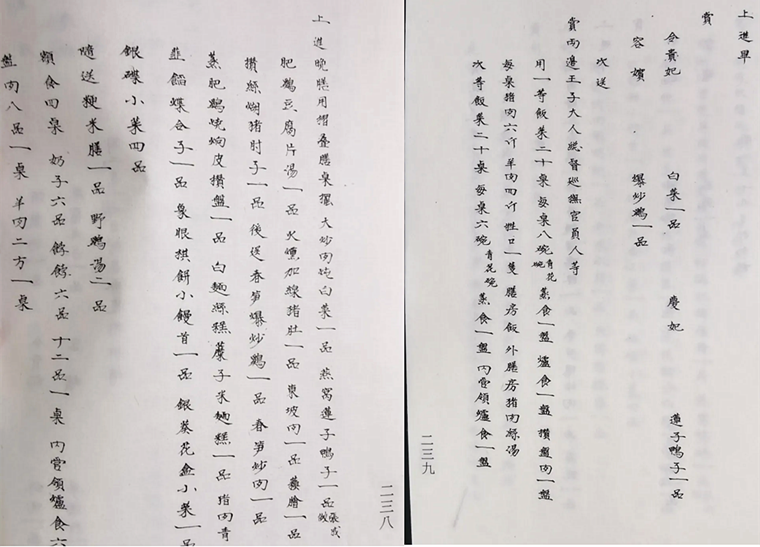 上進晚膳用摺叠膳桌擺大炒肉炖白菜一品 燕窩蓮子鴨子一品張成做
肥鷄豆腐片湯一品 火燻加線猪肚一品 東坡肉一品羹膾一品
攢絲焖猪肘子一品 後送春笋爆炒鷄一品 春笋炒肉一品
蒸肥鷄燒狍皮攢盤一品 白麵絲糕糜子米麵糕一品 猪肉青
韮餡蝶合子一品 象眼棋餅小饅首一品 銀葵花盒小菜一品
銀碟小菜四品
隨送粳米膳一品 野鷄湯一品
額食四桌 奶子六品 餑餑六品 十二品一桌 内管領爐食六
盤肉八品一桌 羊肉二方一桌
二三八
上進畢
賞
令貴妃 白菜一品 慶妃 蓮子鴨子一品
容嬪 爆炒鷄一品
次送
賞両邊王子大人総督廵撫官員人等
用一等飯菜二十桌 每桌八碗青花碗 蒸食一盤 爐食一盤 攢盤肉一盤
每桌猪肉六斤羊肉四斤牲口一隻 膳房飯 外膳房猪肉絲湯
次等飯菜二十桌 每桌六碗青花碗 蒸食一盤 内管領爐食一盤
二三九